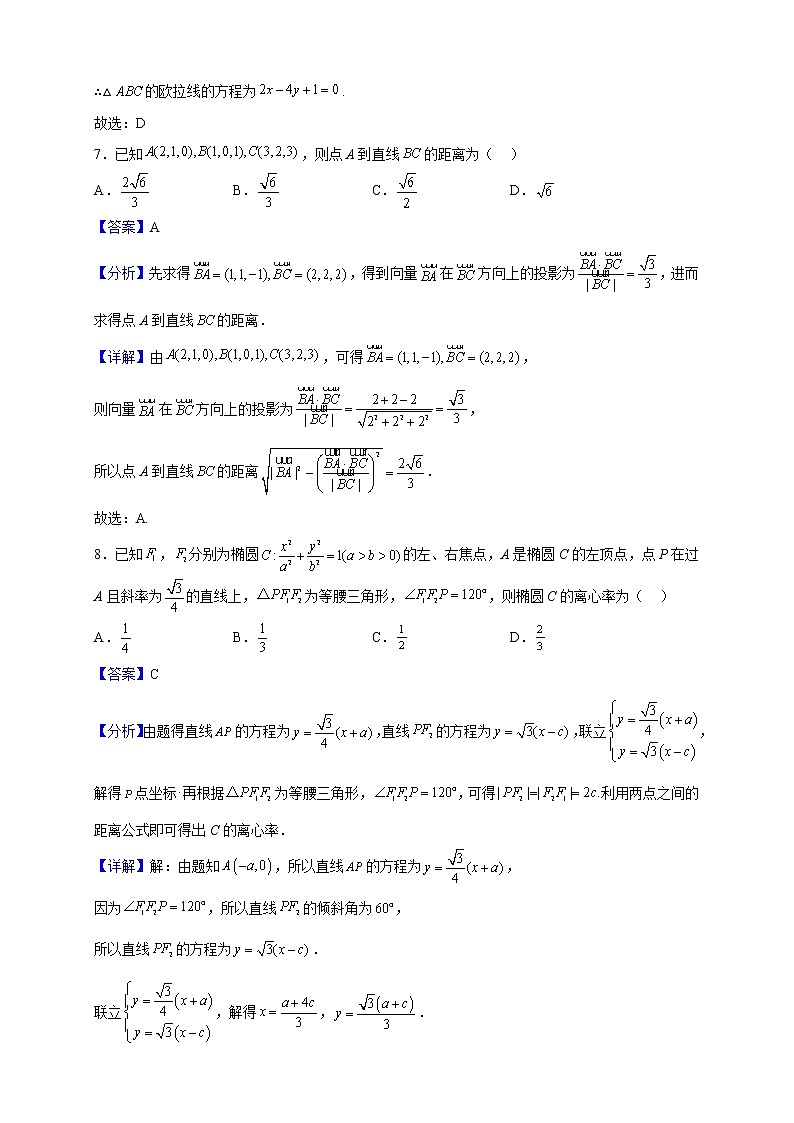 ∴△ABC的欧拉线的方程为2x−4y+1=0.
故选：D
7．已知A(2,1,0),B(1,0,1),C(3,2,3)，则点A到直线BC的距离为（　）
A．2√6/3　B．√6/3　C．√6/2　D．√6
【答案】A
【分析】先求得BA=(1,1,−1),BC=(2,2,2)，得到向量BA在BC方向上的投影为(BA·BC)/|BC|=√3/3，进而
求得点A到直线BC的距离.
【详解】由A(2,1,0),B(1,0,1),C(3,2,3)，可得BA=(1,1,−1),BC=(2,2,2)，
则向量BA在BC方向上的投影为(BA·BC)/|BC|=(2+2−2)/√(2²+2²+2²)=√3/3，
所以点A到直线BC的距离√(|BA|²−((BA·BC)/|BC|)²)=2√6/3.
故选：A.
8．已知F₁，F₂分别为椭圆C:x²/a²+y²/b²=1(a>b>0)的左、右焦点，A是椭圆C的左顶点，点P在过
A且斜率为√3/4的直线上，△PF₁F₂为等腰三角形，∠F₁F₂P=120°，则椭圆C的离心率为（　）
A．1/4　B．1/3　C．1/2　D．2/3
【答案】C
【分析】由题得直线AP的方程为y=√3/4(x+a)，直线PF₂的方程为y=√3(x−c)，联立{y=√3/4(x+a) y=√3(x−c)，
解得P点坐标.再根据△PF₁F₂为等腰三角形，∠F₁F₂P=120°，可得|PF₂|=|F₂F₁|=2c.利用两点之间的
距离公式即可得出C的离心率.
【详解】解：由题知A(−a,0)，所以直线AP的方程为y=√3/4(x+a)，
因为∠F₁F₂P=120°，所以直线PF₂的倾斜角为60°，
所以直线PF₂的方程为y=√3(x−c).
联立{y=√3/4(x+a) y=√3(x−c)，解得x=(a+4c)/3，y=√3(a+c)/3.